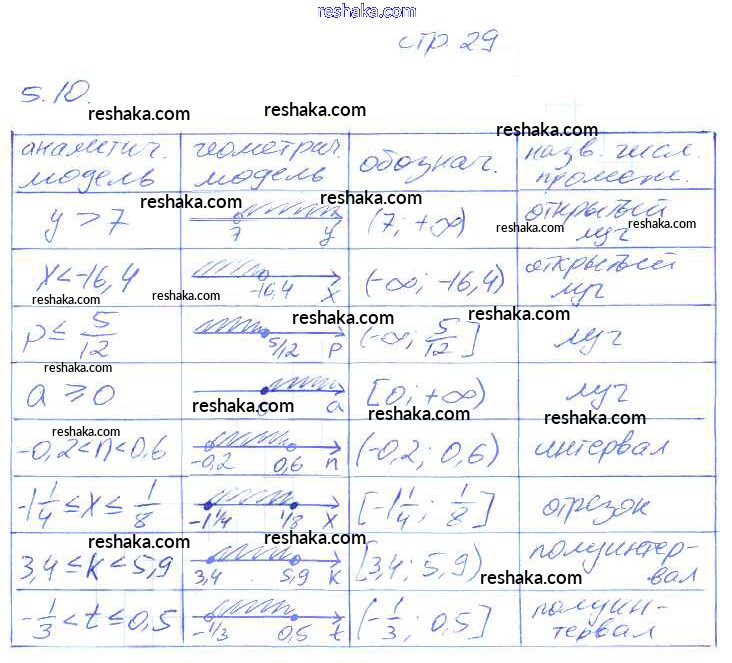 reshaka.com
стр. 29
5.10.
reshaka.com
reshaka.com
reshaka.com
аналитич. модель
геометрич. модель
обознач.
назв. числ. промеж.
y > 7
7 y
(7; +∞)
открытый луч
reshaka.com
reshaka.com
reshaka.com
reshaka.com
x < -16,4
-16,4 x
(-∞; -16,4)
открытый луч
reshaka.com
reshaka.com
reshaka.com
p ≤ 5/12
5/12 p
(-∞; 5/12]
луч
reshaka.com
reshaka.com
reshaka.com
a ≥ 0
a
[0; +∞)
луч
reshaka.com
reshaka.com
reshaka.com
reshaka.com
-0,2 < n < 0,6
-0,2 0,6 n
(-0,2; 0,6)
интервал
reshaka.com
-1 1/4 ≤ x ≤ 1/8
-1 1/4 1/8 x
[-1 1/4; 1/8]
отрезок
reshaka.com
reshaka.com
reshaka.com
3,4 ≤ k < 5,9
3,4 5,9 k
[3,4; 5,9)
полуинтер-
вал
reshaka.com
-1/3 < t ≤ 0,5
-1/3 0,5 t
(-1/3; 0,5]
полуин-
тервал
reshaka.com
reshaka.com